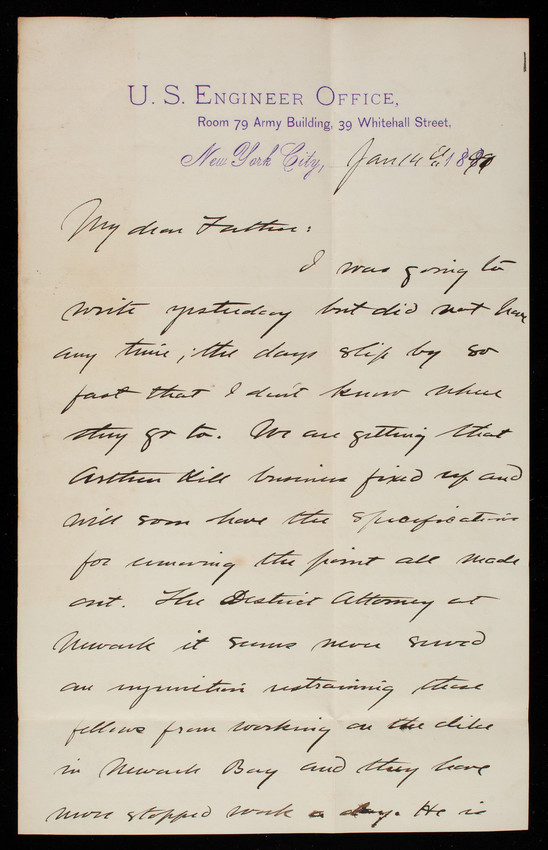 U. S. Engineer Office,
Room 79 Army Building, 39 Whitehall Street,
New York City, Jan 14th 1891
My dear Father:
I was going to
write yesterday but did not have
any time; the days slip by so
fast that I don't know where
they go to. We are getting that
Arthur Kill business fixed up and
will soon have the specifications
for removing the point all made
out. The District Attorney at
Newark it seems never served
an injunction restraining those
fellows from working on the dike
in Newark Bay and they have
never stopped work a day. He is